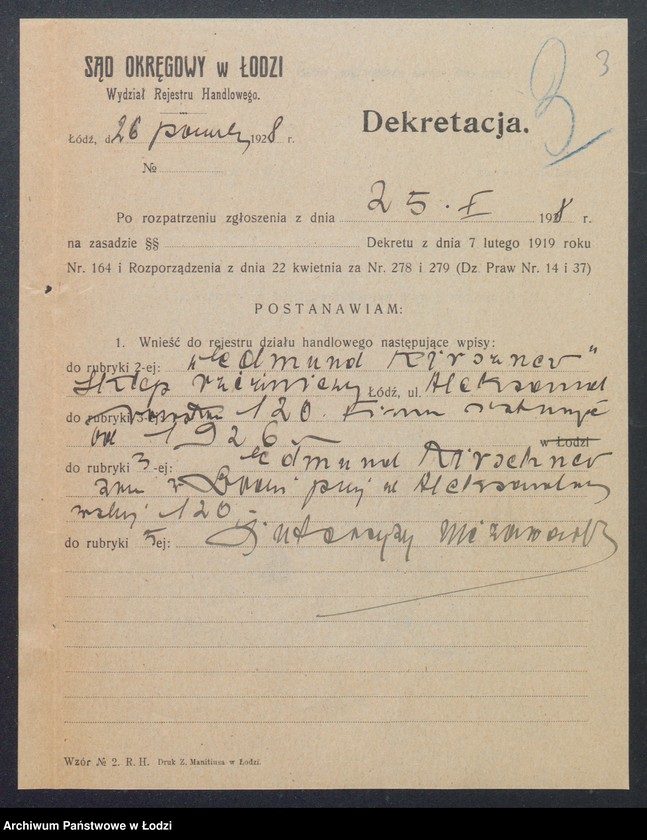 3
3
SĄD OKRĘGOWY w ŁODZI
Wydział Rejestru Handlowego.
Dekretacja.
Łódź, d. 26 1928 r.
№
Po rozpatrzeniu zgłoszenia z dnia 25. I 1928 r.
na zasadzie §§ Dekretu z dnia 7 lutego 1919 roku
Nr. 164 i Rozporządzenia z dnia 22 kwietnia za Nr. 278 i 279 (Dz. Praw Nr. 14 i 37)
POSTANAWIAM:
1. Wnieść do rejestru działu handlowego następujące wpisy:
do rubryki 2-ej: „Edmund Kirszner”
Sklep rzeźniczy Łódź, ul. Aleksand
do rubryki 3-ej: 120. Firma istnieje
od 1926
w Łodzi
do rubryki 3-ej: Edmund Kirschner
zam w Łodzi przy ul Aleksandry
120.
do rubryki 5ej: Intercyzy nie zawarł
Wzór № 2. R. H. Druk Z. Manitiusa w Łodzi.
Archiwum Państwowe w Łodzi